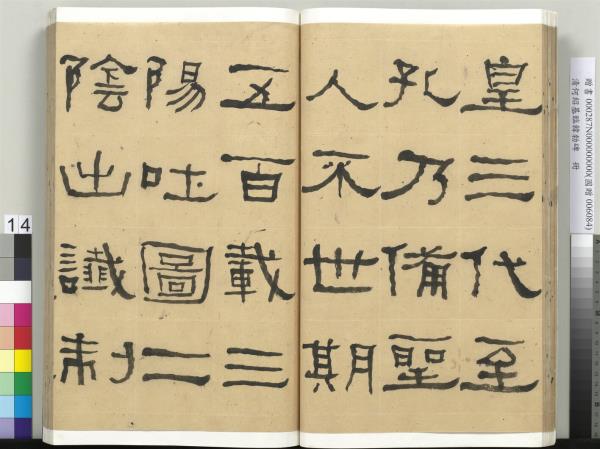 皇三代至
孔乃備聖
人不世期
五百載三
陽吐圖二
陰出讖制
贈書 000287N000000000(國贈 006084)
清何紹基臨韓勅碑 冊
14